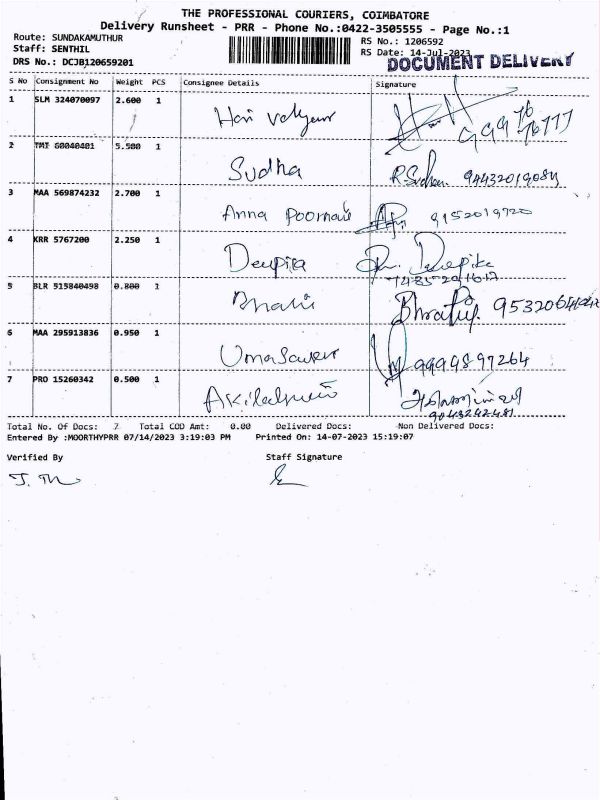 THE PROFESSIONAL COURIERS, COIMBATORE
Delivery Runsheet - PRR - Phone No.:0422-3505555 - Page No.:1
Route: SUNDAKAMUTHUR RS No.: 1206592
Staff: SENTHIL RS Date: 14-Jul-2023
DRS No.: DCJB120659201 DOCUMENT DELIVERY
S No Consignment No Weight PCS Consignee Details Signature
1 SLM 324070097 2.600 1 Hari
2 TMI 60040401 5.500 1 Sudha R.Sudha 9443201908
3 MAA 569874232 2.700 1 Anna Poornani 9152019720
4 KRR 5767200 2.250 1 Deepika Deepika
5 BLR 515840498 0.800 1
6 MAA 295913836 0.950 1 9994897264
7 PRO 15260342 0.500 1
9043242481
Total No. Of Docs: 7 Total COD Amt: 0.00 Delivered Docs: Non Delivered Docs:
Entered By :MOORTHYPRR 07/14/2023 3:19:03 PM Printed On: 14-07-2023 15:19:07
Verified By Staff Signature